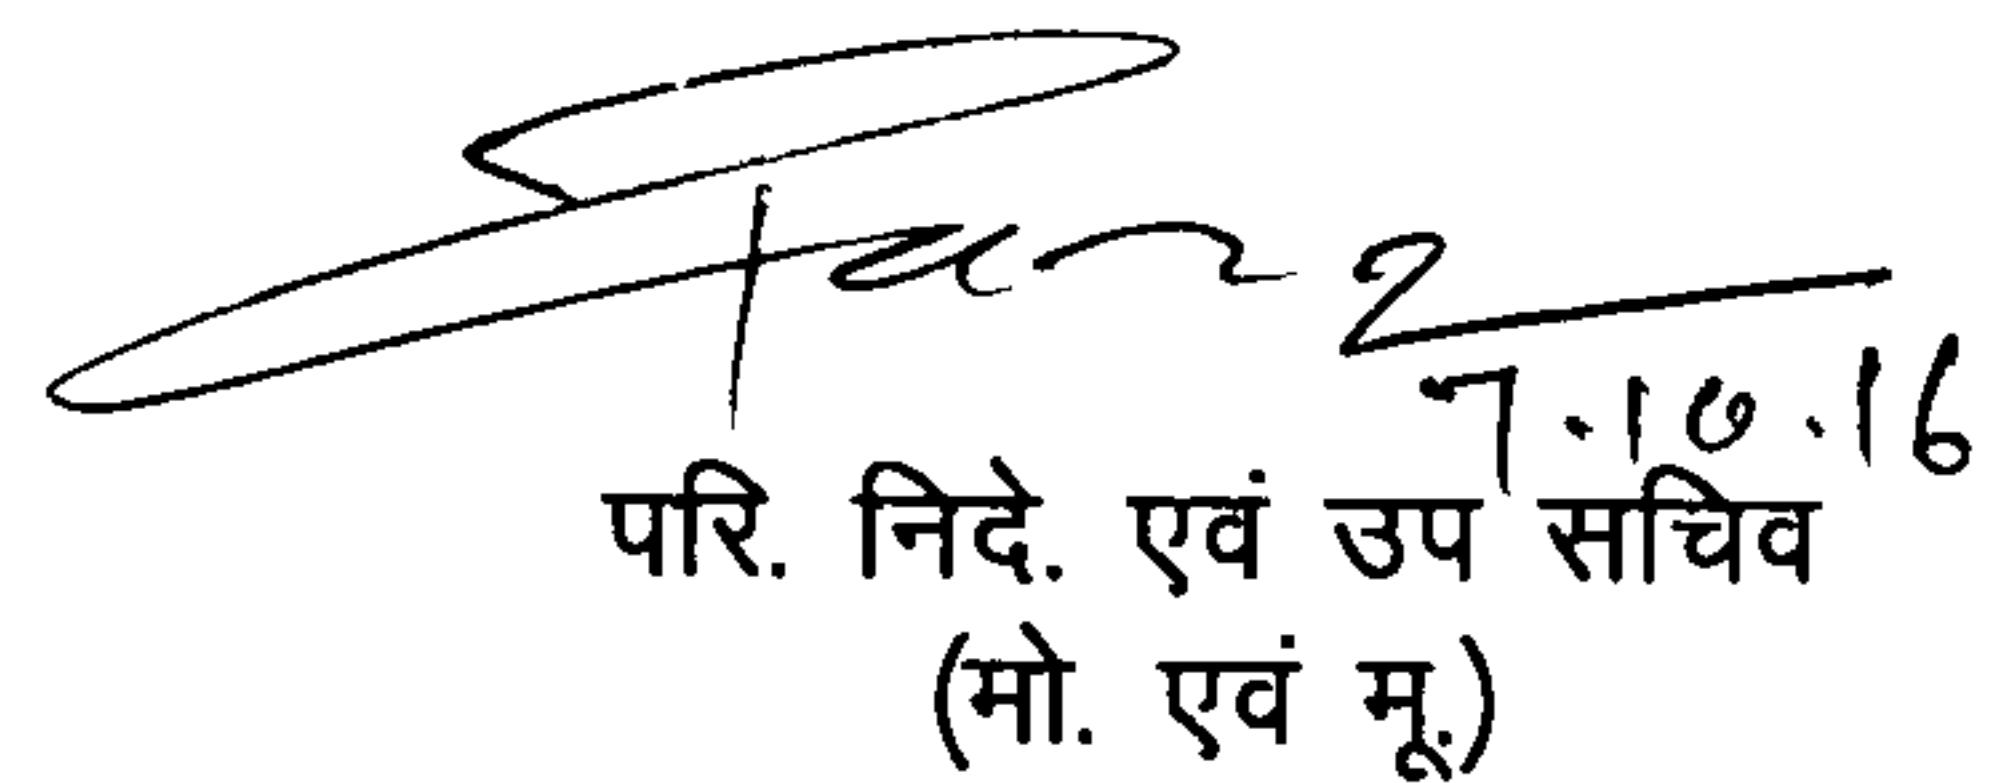 7.10.16
परि. निदे. एवं उप सचिव
(मो. एवं मू.)